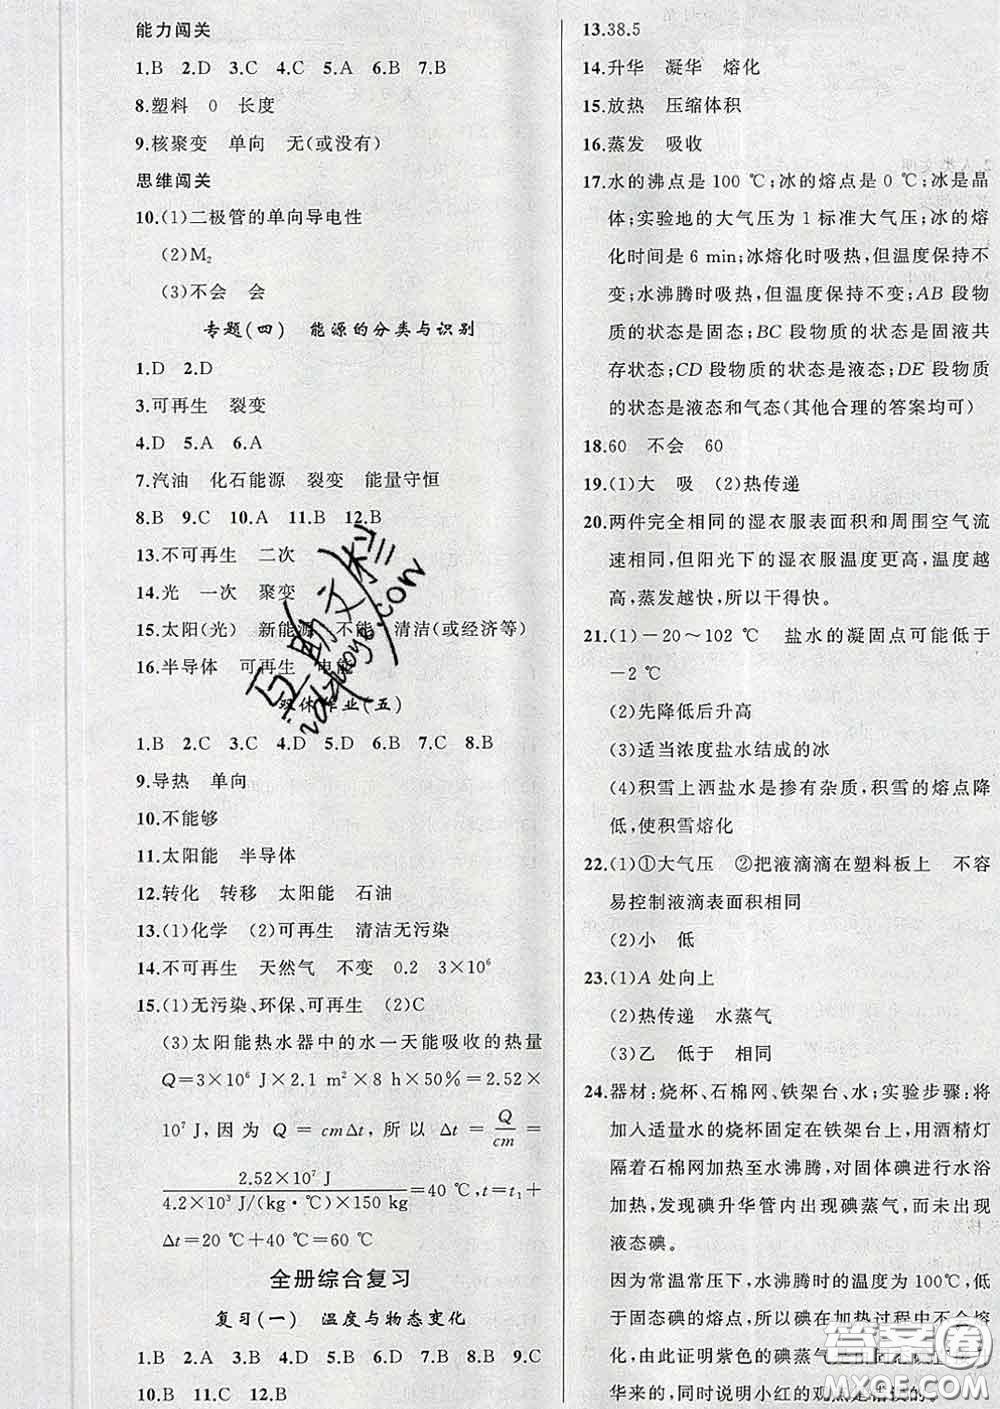 能力闯关
1.B 2.D 3.C 4.C 5.A 6.B 7.B
8.塑料 0 长度
9.核聚变 单向 无(或没有)
思维闯关
10.(1)二极管的单向导电性
(2)M₂
(3)不会 会
专题(四) 能源的分类与识别
1.D 2.D
3.可再生 裂变
4.D 5.A 6.A
7.汽油 化石能源 裂变 能量守恒
8.B 9.C 10.A 11.B 12.B
13.不可再生 二次
14.光 一次 聚变
15.太阳(光) 新能源 不能 清洁(或经济等)
16.半导体 可再生 电能
双休作业(五)
1.B 2.C 3.C 4.D 5.D 6.B 7.C 8.B
9.导热 单向
10.不能够
11.太阳能 半导体
12.转化 转移 太阳能 石油
13.(1)化学 (2)可再生 清洁无污染
14.不可再生 天然气 不变 0.2 3×10⁶
15.(1)无污染、环保、可再生 (2)C
(3)太阳能热水器中的水一天能吸收的热量
Q=3×10⁶ J×2.1 m²×8 h×50%=2.52×
10⁷ J,因为 Q=cmΔt,所以 Δt=Q/cm=
2.52×10⁷ J/4.2×10³ J/(kg·℃)×150 kg=40 ℃,t=t₁+
Δt=20 ℃+40 ℃=60 ℃
全册综合复习
复习(一) 温度与物态变化
1.B 2.A 3.B 4.B 5.B 6.D 7.B 8.B 9.C
10.B 11.C 12.B
13.38.5
14.升华 凝华 熔化
15.放热 压缩体积
16.蒸发 吸收
17.水的沸点是 100 ℃;冰的熔点是 0 ℃;冰是晶
体;实验地的大气压为 1 标准大气压;冰的熔
化时间是 6 min;冰熔化时吸热,但温度保持不
变;水沸腾时吸热,但温度保持不变;AB 段物
质的状态是固态;BC 段物质的状态是固液共
存状态;CD 段物质的状态是液态;DE 段物质
的状态是液态和气态(其他合理的答案均可)
18.60 不会 60
19.(1)大 吸 (2)热传递
20.两件完全相同的湿衣服表面积和周围空气流
速相同,但阳光下的湿衣服温度更高,温度越
高,蒸发越快,所以干得快。
21.(1)－20～102 ℃ 盐水的凝固点可能低于
－2 ℃
(2)先降低后升高
(3)适当浓度盐水结成的冰
(4)积雪上洒盐水是掺有杂质,积雪的熔点降
低,使积雪熔化
22.(1)①大气压 ②把液滴滴在塑料板上 不容
易控制液滴表面积相同
(2)小 低
23.(1)A 处向上
(2)热传递 水蒸气
(3)乙 低于 相同
24.器材:烧杯、石棉网、铁架台、水;实验步骤:将
加入适量水的烧杯固定在铁架台上,用酒精灯
隔着石棉网加热至水沸腾,对固体碘进行水浴
加热,发现碘升华管内出现碘蒸气,而未出现
液态碘。
因为常温常压下,水沸腾时的温度为 100℃,低
于固态碘的熔点,所以碘在加热过程中不会熔
化,由此证明紫色的碘蒸气是由固态碘直接升
华来的,同时说明小红的观点是错误的。
互助文栏
idazhuoye.com
答案圈
MXQE.COM